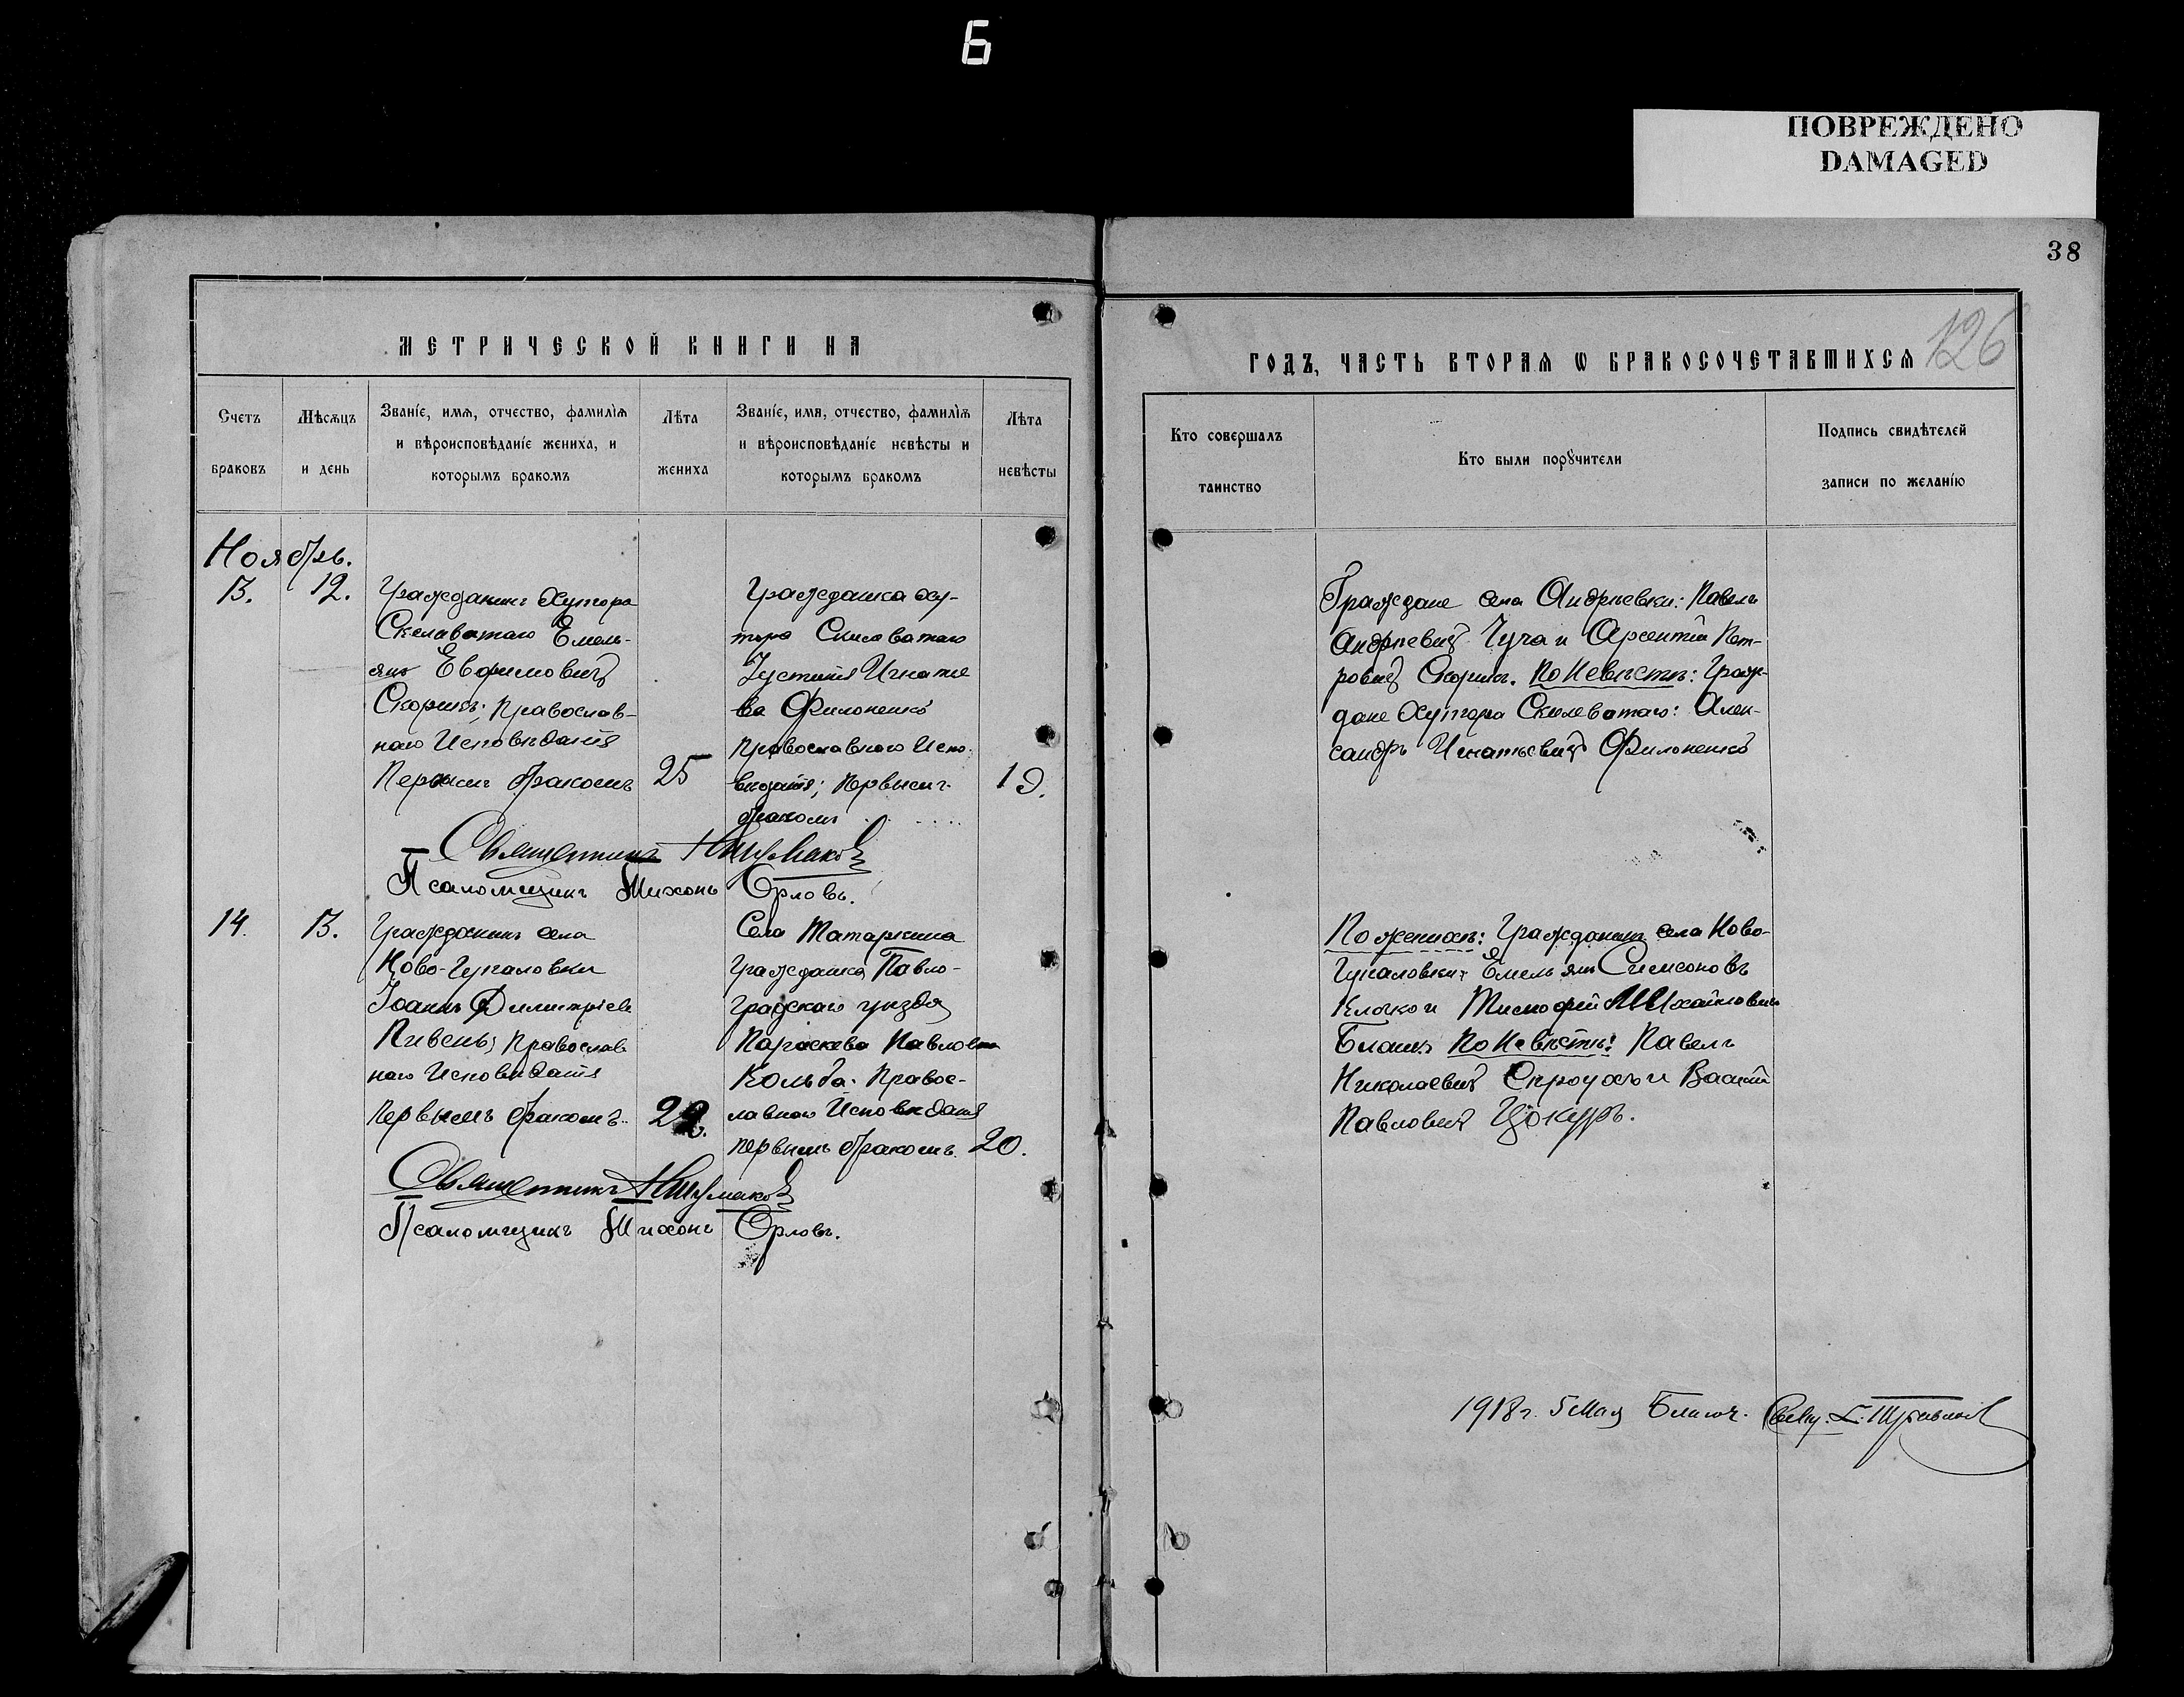 Б
ПОВРЕЖДЕНО
DAMAGED
38
126
МЕТРИЧЕСКОЙ КНИГИ НА
Счетъ браковъ
Мѣсѧцъ и день
Званіе, имѧ, отчество, фамиліѧ и вѣроисповѣданіе жениха, и которымъ бракомъ
Лѣта жениха
Званіе, имѧ, отчество, фамиліѧ и вѣроисповѣданіе невѣсты и которымъ бракомъ
Лѣта невѣсты
Ноябрь.
13.
12.
Гражданинъ Хутора
Скелеватаго Емель-
янъ Евфимовичъ
Скорикъ; Православ-
наго Исповѣданія
Первымъ бракомъ
25
Гражданка Ху-
тора Скилеватаго
Іустинія Игнатіе
ва Филоненко
Православнаго Испо-
вѣданія; Первымъ
бракомъ
19.
Священникъ
Псаломщикъ Тихонъ Орловъ.
14.
13.
Гражданинъ села
Ново-Гупаловки
Іоаннъ Димитріев
Пивень; Православ
наго Исповѣданія
первымъ бракомъ.
22.
Села Татаркина
Гражданка Павло-
градскаго уѣзда
Параскева Павловна
Кольба. Правос-
лавнаго Исповѣданія
первымъ бракомъ.
20.
Священникъ
Псаломщикъ Тихонъ Орловъ.
ГОДЪ, ЧАСТЬ ВТОРАѦ Ѡ БРАКОСОЧЕТАВШИХСѦ
Кто совершалъ таинство
Кто были порꙋчители
Подпись свидѣтелей записи по желанію
Граждане села Андреевки: Павелъ
Андреевичъ Чуча и Арсентій Пет-
ровичъ Скорикъ. По Невѣстѣ: Граж-
дане Хутора Скилеватаго: Алек-
сандръ Игнатьевичъ Филоненко
По женихѣ: Гражданинъ села Ново-
Гупаловки: Емельянъ Симоновъ
Клочко и Тимофей Михайловичъ
По Невѣстѣ: Павелъ
Николаевичъ и Василій
Павловичъ Цокуръ.
1918г. 5 Мая Благоч.